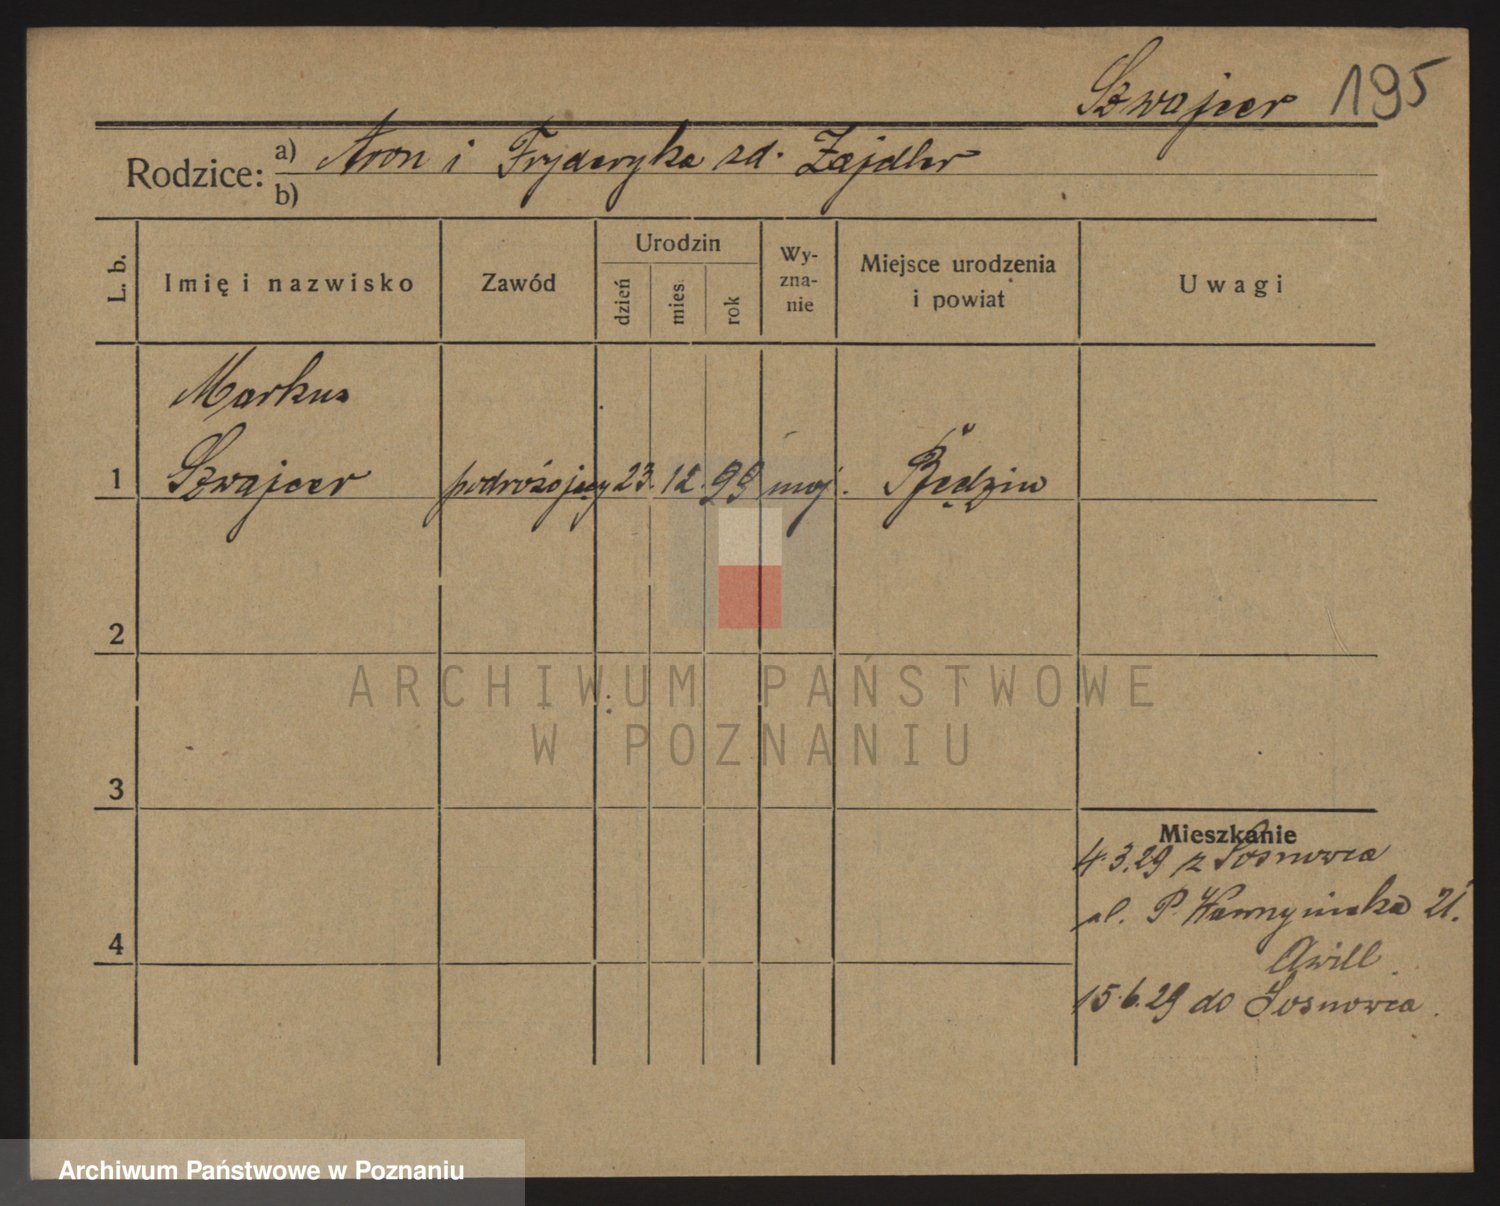 Szwajcer 195
Rodzice: a) Aron i Fryderyka zd. Zajdler
b)
L. b.
Imię i nazwisko
Zawód
Urodzin
dzień
mies.
rok
Wy-
zna-
nie
Miejsce urodzenia
i powiat
Uwagi
Markus
1 Szwajcer podróżojący 23. 12. 99 moj. Będzin
2
ARCHIWUM PAŃSTWOWE
W POZNANIU
3
Mieszkanie
4.3.29 z Sosnowca
ul. P. 21.
4
15.6.29 do Sosnowca.
Archiwum Państwowe w Poznaniu